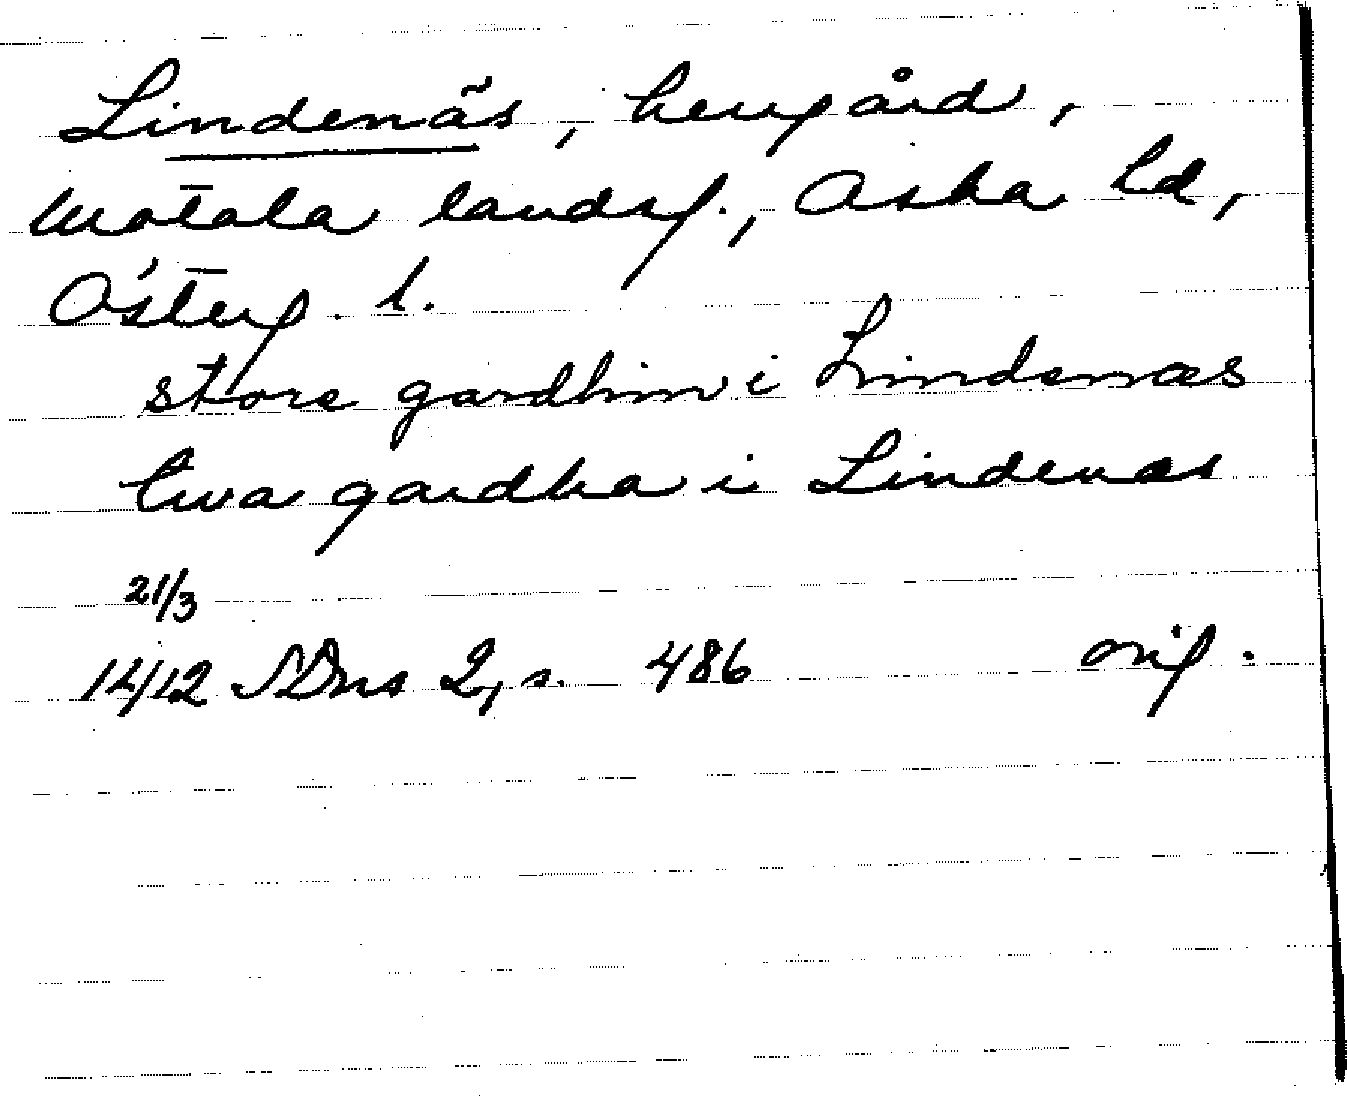 Lindenäs, herrgård,
Motala landsf., Aska hd,
Österg. l.
store gardhin i Lindenæs
twa gardha i Lindenæs
21/3
14/12 SDns 2, s. 486 orig.